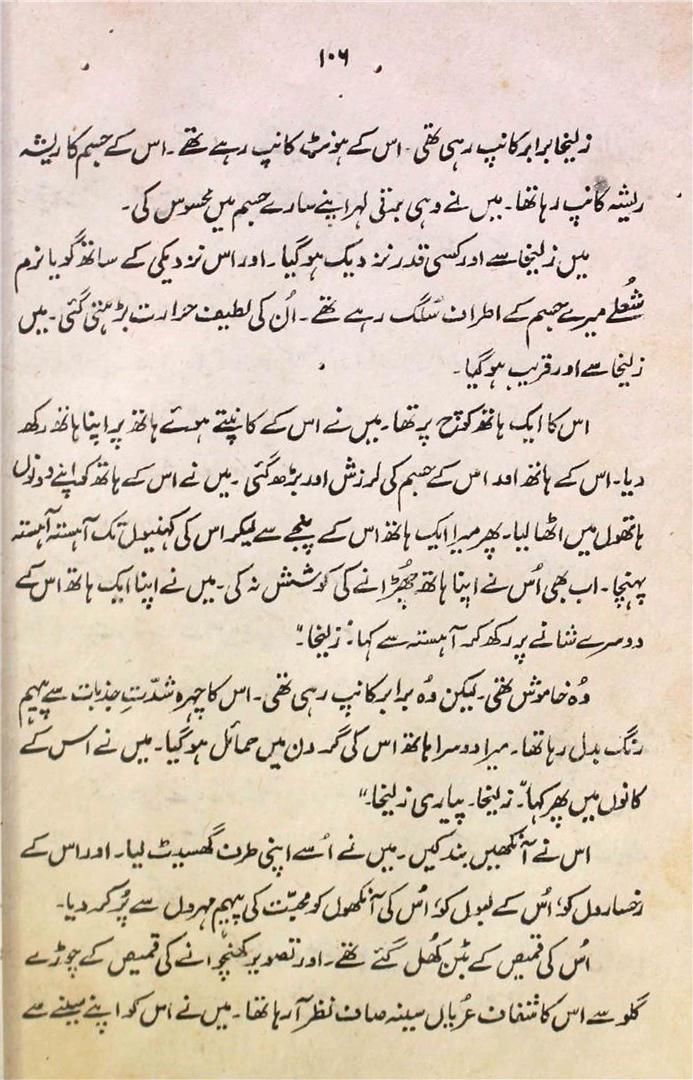 ۱۰۶
زلیخا برابر کانپ رہی تھی۔ اس کے ہونٹ کانپ رہے تھے۔ اس کے جسم کا ریشہ
ریشہ کانپ رہا تھا۔ میں نے وہی برقی لہر اپنے سارے جسم میں محسوس کی۔
میں زلیخا سے اور کسی قدر نزدیک ہوگیا۔ اور اس نزدیکی کے ساتھ گویا نرم
شُعلے میرے جسم کے اطراف سُلگ رہے تھے۔ اُن کی لطیف حرارت بڑھتی گئی۔ میں
زلیخا سے اور قریب ہوگیا۔
اس کا ایک ہاتھ کوچ پر تھا۔ میں نے اس کے کانپتے ہوئے ہاتھ پر اپنا ہاتھ رکھ
دیا۔ اس کے ہاتھ اور اس کے جسم کی لرزش اور بڑھ گئی۔ میں نے اس کے ہاتھ کو اپنے دونوں
ہاتھوں میں اٹھا لیا۔ پھر میرا ایک ہاتھ اس کے پنجے سے لیکر اس کی کہنیوں تک آہستہ آہستہ
پہنچا۔ اب بھی اُس نے اپنا ہاتھ چھڑانے کی کوشش نہ کی۔ میں نے اپنا ایک ہاتھ اس کے
دوسرے شانے پر رکھ کر آہستہ سے کہا۔ "زلیخا۔"
وُہ خاموش تھی۔ لیکن وُہ برابر کانپ رہی تھی۔ اس کا چہرہ شدّتِ جذبات سے پیہم
رنگ بدل رہا تھا۔ میرا دوسرا ہاتھ اس کی گردن میں حمائل ہوگیا۔ میں نے اس کے
کانوں میں پھر کہا۔ "زلیخا۔ پیاری زلیخا۔"
اس نے آنکھیں بند کیں۔ میں نے اُسے اپنی طرف گھسیٹ لیا۔ اور اس کے
رخساروں کو، اُس کے لبوں کو، اُس کی آنکھوں کو محبّت کی پیہم مہروں سے پُر کر دیا۔
اُس کی قمیص کے بٹن کھُل گئے تھے۔ اور تصویر کھنچوانے کی قمیص کے چوڑے
گلو سے اس کا شفاف عُریاں سینہ صاف نظر آ رہا تھا۔ میں نے اس کو اپنے سینے سے